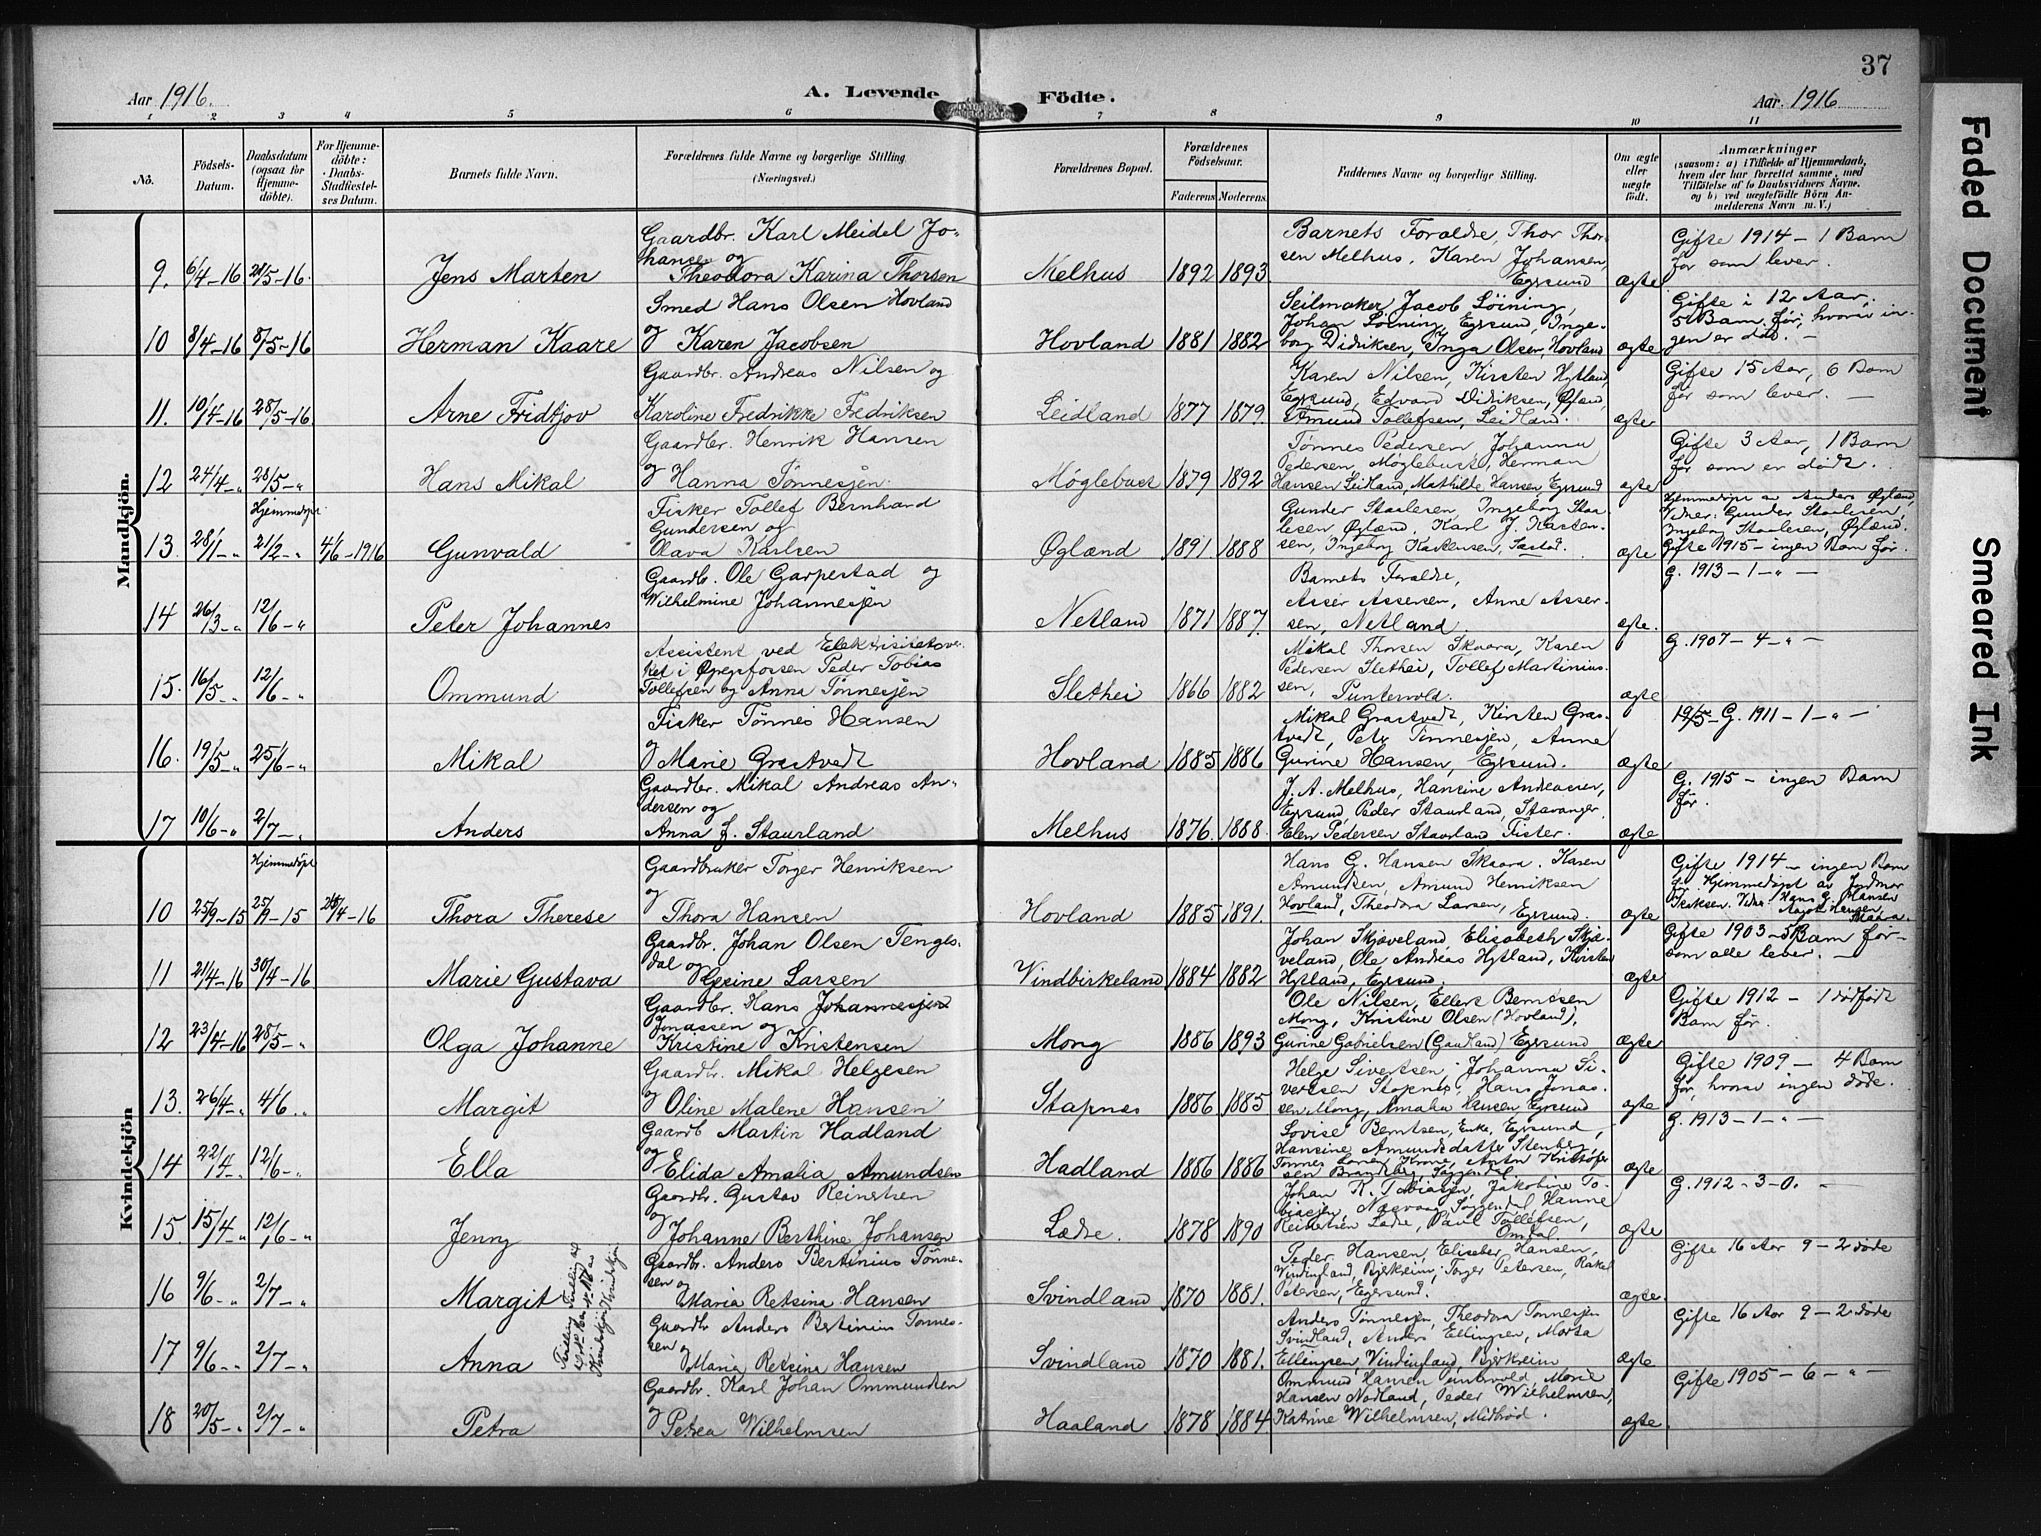 37
Aar 1916.
A. Levende Födte.
Aar 1916
1 2 3 4 5 6 7 8 9 10 11
No.
Födsels-Datum.
Daabsdatum (ogsaa for Hjemme-döbte).
For Hjemme-döbte: Daabs-Stadfæstel-ses Datum.
Barnets fulde Navn.
Forældrenes fulde Navne og borgerlige Stilling. (Næringsvei.)
Forældrenes Bopæl.
Forældrenes Födselsaar.
Faderens Moderens.
Faddernes Navne og borgerlige Stilling.
Om ægte eller uægte födt.
Anmærkninger
(saasom: a) i Tilfælde af Hjemmedaab, hvem der har forrettet samme, med Tilföielse af to Daabsvidners Navne, og b) ved uægtefödte Börn Anmelderens Navn m. V.)
Mandkjön.
9. 6/4-16 21/5-16. Jens Marten
Gaardbr. Karl Meidel Jo-
hansen og
Theodora Karina Thorsen
Melhus 1892 1893.
Barnets Foraldre, Thor Thor-
sen Melhus, Karen Johansen,
Egersund ægte
Gifte 1914 - 1 Barn
før som lever.
10 8/4-16 8/5-16 Herman Kaare
Smed Hans Olsen Hovland
og Karen Jacobsen
Hovland 1881 1882
Seilmaker Jacob Løining,
Johan Løining, Egersund, Inge-
borg Didriksen, Inga Olsen, Hovland ægte
Gifte i 12 Aar,
5 Barn før, hvorav in-
gen er død. -
11. 10/4-16 28/5-16. Arne Fridtjov
Gaardbr. Andreas Nilsen og
Karoline Fredrikke Fredriksen
Leidland 1877 1879.
Karen Nilsen, Kirsten Hytland,
Egersund, Edvard Didriksen, Øgland,
Amund Tollefsen, Leidland. ægte
Gifte 15 Aar, 6 Barn
før som lever. -
12 24/4-" 28/5-" Hans Mikal
Gaardbr. Henrik Hansen
og Hanna Tønnesjen
Møglebust 1879 1892
Tønnes Pedersen Johanna
Pedersen, Møglebust, Herman
Hansen Leidland, Mathilde Hansen Egersund ægte
Gifte 3 Aar, 1 Barn
før som er dødt.
13. 28/1-" Hjemmedøpt 21/2-" 4/6-1916 Gunvald
Fisker Tollef Bernhard
Gundersen og
Olava Karlsen
Øgland 1891 1888
Gunder Staalesen, Ingeborg Staa-
lesen Øgland, Karl J. Karten-
sen, Ingeborg Kartensen, ægte
Hjemmedøpt av Anders Øgland,
Vidner: Gunder Staalesen,
Ingeborg Staalesen, Øgland.
Gifte 1915 - ingen Barn før.
14 26/3-" 12/6-" Peter Johannes
Gaardb. Ole Garpestad og
Wilhelmine Johannesjen
Netland 1871 1887.
Barnets Foraldre,
Asser Assersen, Anne Asser-
sen, Netland. ægte.
G. 1913 - 1 - " -
15. 16/5-" 12/6-" Ommund
Assistent ved Elektrisitetsver-
ket i Øgreyfossen Peder Tobias
Tollefsen og Anna Tønnesjen
Slethei 1866 1882
Mikal Thorsen Skaara, Karen
Pedersen Slethei, Tollef Martinius-
sen, Puntervold. ægte
G. 1907 - 4 - " -
16. 19/5-" 25/6-" Mikal
Fisker Tønnes Hansen
og Marie Grastvedt
Hovland 1885 1886
Mikal Grastvedt, Kirsten Gras-
tvedt, Peter Tønnesjen, Anne
Gurine Hansen, Egersund. ægte
19/5- G. 1911 - 1 - " -
17 10/6-" 2/7-" Anders
Gaardbr. Mikal Andreas An-
dersen og
Anna J. Staurland
Melhus 1876. 1888.
J. A. Melhus, Hansine Andreassen,
Egersund, Peder Staurland, Stavanger,
Elen Pedersen Staurland Fister. ægte
G. 1915 - ingen Barn
før.
Kvindekjön
10 25/9-15 Hjemmedøpt 25/9-15 24/4-16 Thora Therese
Gaardbruker Torger Henriksen
og
Thora Hansen
Hovland 1885 1891.
Hans G. Hansen Skaara. Karen
Amundsen, Amund Henriksen
Hovland, Theodora Larsen, Egersund. ægte
Gifte 1914 - ingen Barn
før. Hjemmedøpt av Jordmor
Isaksen. Vidner: Hans G. Hansen
Aagot Hansen, Skaara.
11 21/4-16 30/4-16 Marie Gustava
Gaardbr. Johan Olsen Tenges-
dal og
Gesine Larsen
Vindbirkeland 1884 1882
Johan Skjæveland, Elisabeth Skjæ-
veland, Ole Andreas Hytland, Kirsten
Hytland, Egersund. ægte
Gifte 1903 - 5 Barn før -
som alle lever. -
12 23/4-16 28/5-" Olga Johanne
Gaardbr. Hans Johannesjen
Jonassen og
Kristine Kristensen
Mong 1886 1893
Ole Nilsen, Ellert Berntsen
Mong, Kristine Olsen (Hovland),
Gurine Gabrielsen (Gaudland) Egersund ægte
Gifte 1912 - 1 dødfødt
Barn før.
13. 26/4-" 4/6-" Margit
Gaardbr. Mikal Helgesen
og Oline Malene Hansen
Stapnes 1886 1885
Helge Sivertsen, Johanna Si-
vertsen Stapnes, Hans Jonas-
sen Mong, Amalia Hansen, Egersund ægte
Gifte 1909 - 4 Barn
før, hvorav ingen døde.
14 22/4-" 12/6-" Ella
Gaardb Martin Hadland
og
Elida Amalia Amundsen
Hadland 1886 1886
Lovise Berntsen, Enke, Egersund,
Hansine Amundsdatter Stenberg,
Tønnes Larsen Krone, Anton Kristofer-
sen Brandsberg, Soggendal ægte
G. 1913 - 1 - " -
15. 15/4-" 12/6-" Jenny
Gaardbr. Gustav Reinertsen
og Johanne Berthine Johansen
Lædre. 1878 1890
Johan K. Tobiasen, Jakobine To-
biasen, Soggendal, Hanne
Reinertsen Lædre, Paul Tollefsen,
Omdal. ægte
G. 1912 - 3 - 0. -
16 9/6-" 2/7-" Margit
Gaardbr. Anders Bertinius Tønne-
sen og
Maria Retsina Hansen
Svindland 1870 1881.
Peder Hansen, Eliseber Hansen,
Vindingland, Bjerkreim, Torger Petersen, Rakel
Petersen, Egersund. ægte.
Gifte 16 Aar 9 - 2 døde
17 9/6-" 2/7-" Anna
Gaardbr Anders Bertinius Tønnes-
sen og
Maria Retsina Hansen
Svindland 1870 1881.
Anders Tønnesjen, Theodora Tønnesjen
Svindland, Anders Ellingsen, Marta
Ellingsen Vindingland, Bjerkreim ægte
Gifte 16 Aar 9 - 2 døde
18 20/5-" 2/7-" Petra
Gaardbr. Karl Johan Ommundsen
og Petrea Wilhelmsen
Haaland 1878 1884
Ommund Hansen Puntervold, Marie
Hansen Nodland, Peder Wilhelmsen,
Katrine Wilhelmsen, Midbrød. ægte
Gifte 1905 - 6 - " -
Faded Document
Smeared Ink